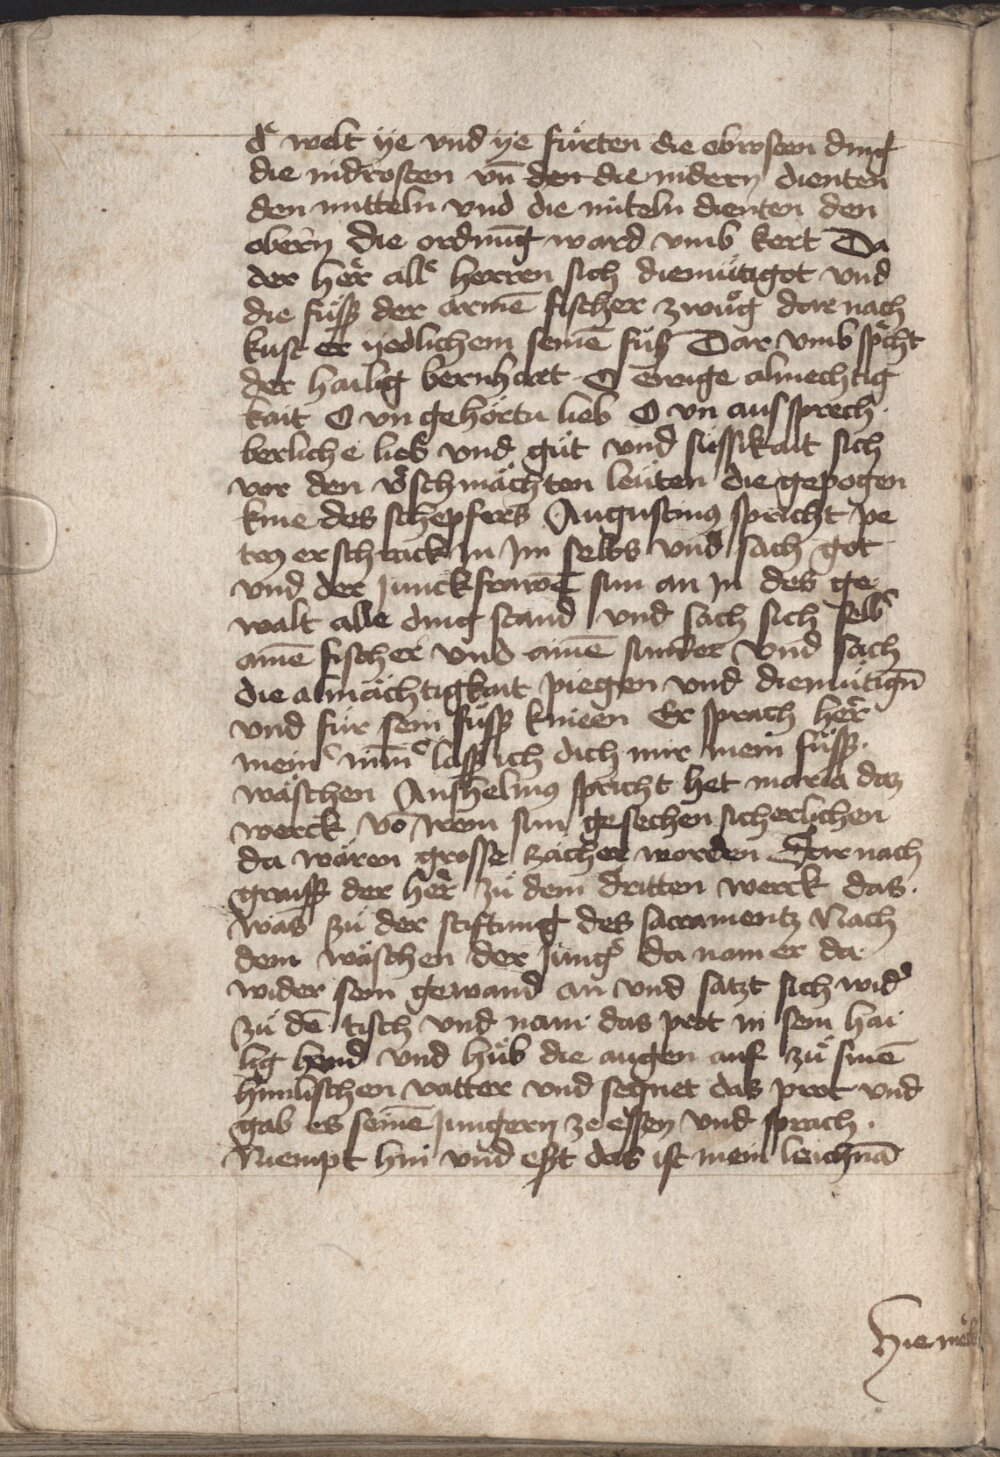 dˀ welt ye vnd ye fürten die obrosten ding
die nidrosten vn̄ den die nidern dienten
den mitteln vnd die miteln dienten den
obern die ordnūg ward vmb kert Da
der her̄ allˀ herren sich diemütigot vnd
die füsß der armē fischer zwůg dar nach
kust er yedlichem seinē fůß Dar vmb spͥcht
der hailig bernhart O ewige almechtig
kait O vn gehörtu lieb O vn aus sprech
berliche lieb vnd güt vnd süssikait sich
vor den vˀschmächten leüten die gepogen
knie des schepfers Augustinꝰ spricht pe
trꝰ erschrack in im selbs vnd sach got
vnd der junckfrawē sun an in des ge
walt alle ding stand vnd sach sich selbˀ
ainē fischer vnd ainē sünder vnd sach
die almächtigkait piegen vnd diemütign̄
vnd für sein füsß knieen Er sprach her̄
mein nimˀ lasß ich dich mir mein füsß
wäschen Anshelmꝰ spricht het maria das
werck vō irem sun gesechen sicherlichen
da wären grosse zächer worden Dar nach
graiff der her̄ zů dem dritten werck das
was zů der stiftung des sacramentz Nach
dem wäschen der jungˀ da nam er da
wider sein gewand an vnd satzt sich widˀ
zů dē tisch vnd nam das prot in sein hai
lig hend vnd hůb die augen auf zů sinē
himlischen vatter vnd segnet das prot vnd
gab es seinē jungern ze essen vnd sprach
Niempt hin vnd eßt das ist mein leichnā
Hie